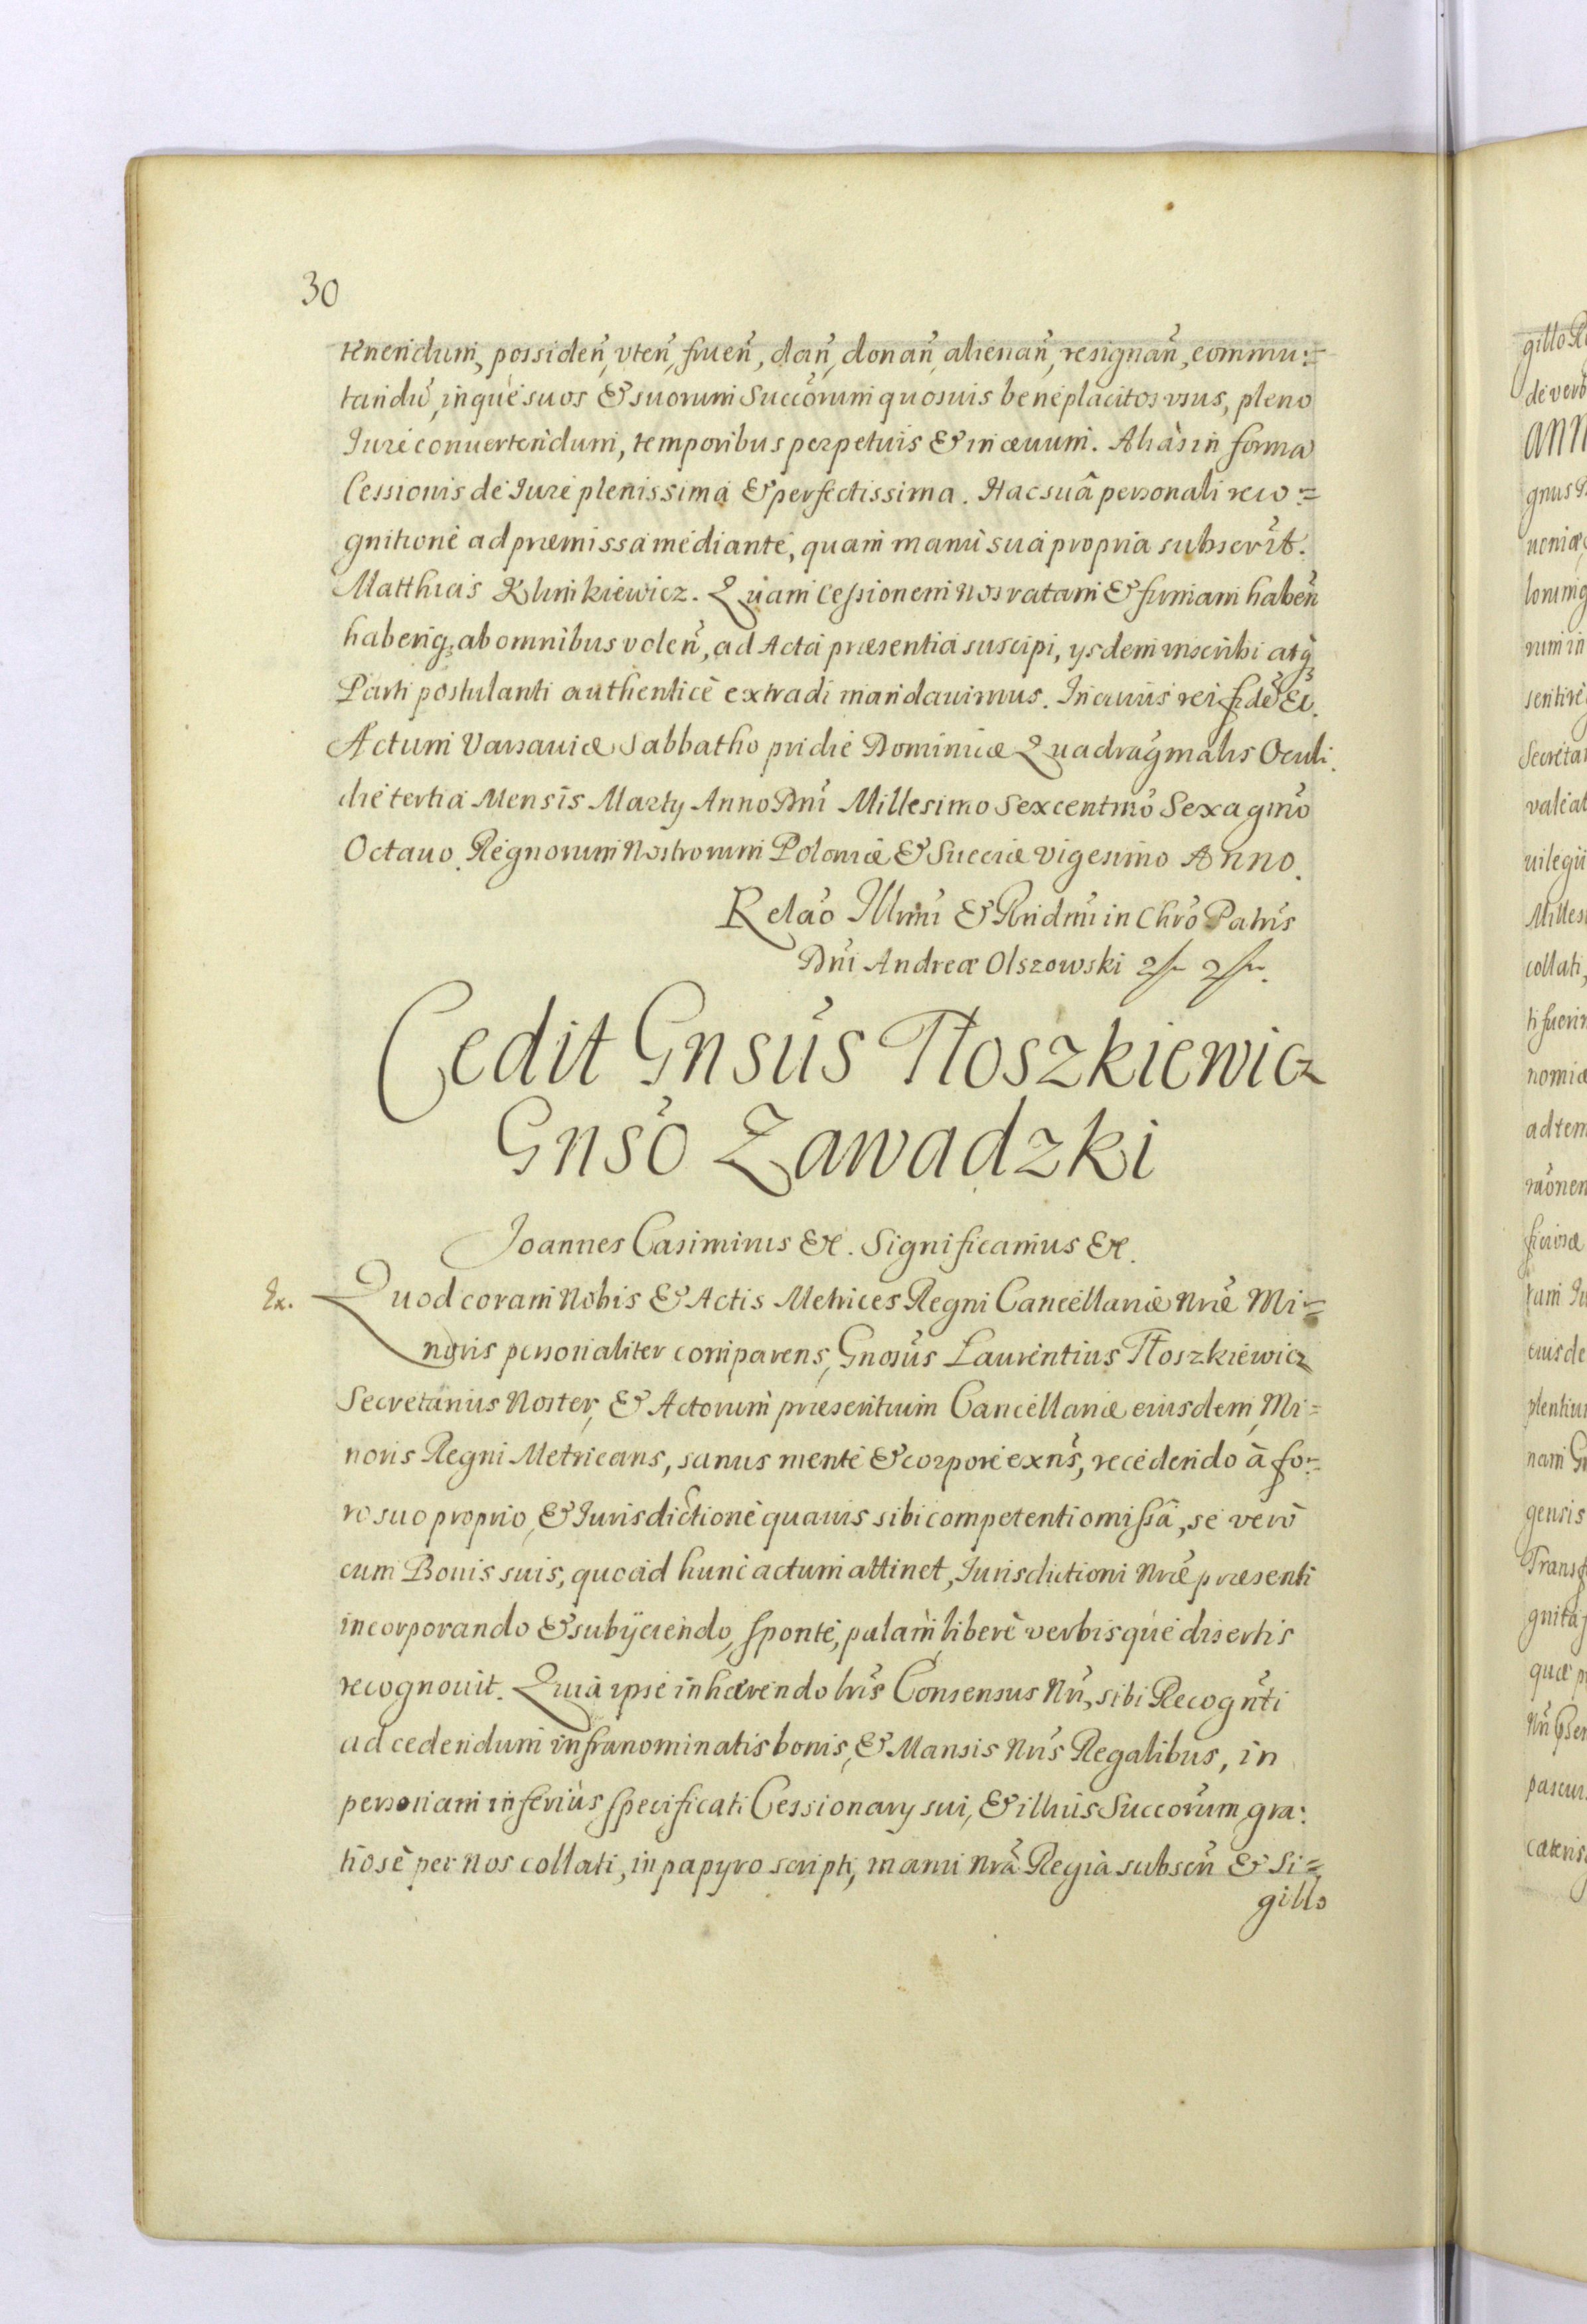 30
tenendum, possideñ, vteñ, frueñ, dañ, donañ, alienañ, resignañ, commu:=
tandũ, inque suos & suorum Succorum quosuis beneplacitos vsus, pleno
Iure conuertendum, temporibus perpetuis & in æuum. Aliàs in forma
Cessionis de Iure plenissima & perfectissima. Hac suâ personali reco:=
gnitione ad præmissa mediante, quam manu sua propria subscrit.
Matthias Klimkiewicz. Quam Cessionem Nos ratam & firmam habeñ
haberiq; ab omnibus voleñ, ad Acta præsentia suscipi, ysdem inscribi atq;
Parti postulanti authenticè extradi mandauimus. In cuius rei fidẽ &.
Actum Varsauiæ Sabbatho pridie Dominicæ Quadragmalis Oculi.
die tertia Mensis Marty Anno Dni Millesimo Sexcentmo Sexagmo
Octauo. Regnorum Nostrorum Poloniæ & Sueciæ vigesimo Anno.
Relão Illmi & Rndmi in Chrõ Patris
Dni Andreæ Olszowski
Cedit Gnsus Tłoszkiewicz
Gnso Zawadzki
Joannes Casimirus &c. Significamus &c.
Ex. Quod coram Nobis & Actis Metrices Regni Cancellariæ Nræ Mi:=
noris personaliter comparens, Gnosus Laurentius Tłoszkiewicz
Secretarius Noster, & Actorum præsentium Cancellariæ eiusdem, Mi=
noris Regni Metricans, sanus mente & corpore exñs, recedendo à fo:=
ro suo proprio, & Iurisdictione quauis sibi competenti omissâ, se verò
cum Bonis suis, quoad hunc actum attinet, Iurisdictioni Nræ præsenti
incorporando & subÿciendo, sponte, palam, liberè verbisque disertis
recognouit. Quia ipse inhærendo lris Consensus Nri, sibi Recognti
ad cedendum infranominatis bonis, & Mansis Nris Regalibus, in
personam inferiùs specificati Cessionary sui, & illius Succorum, gra:
tiosè per Nos collati, in papyro scripti, manu Nra Regia subscri & Si=
gillo